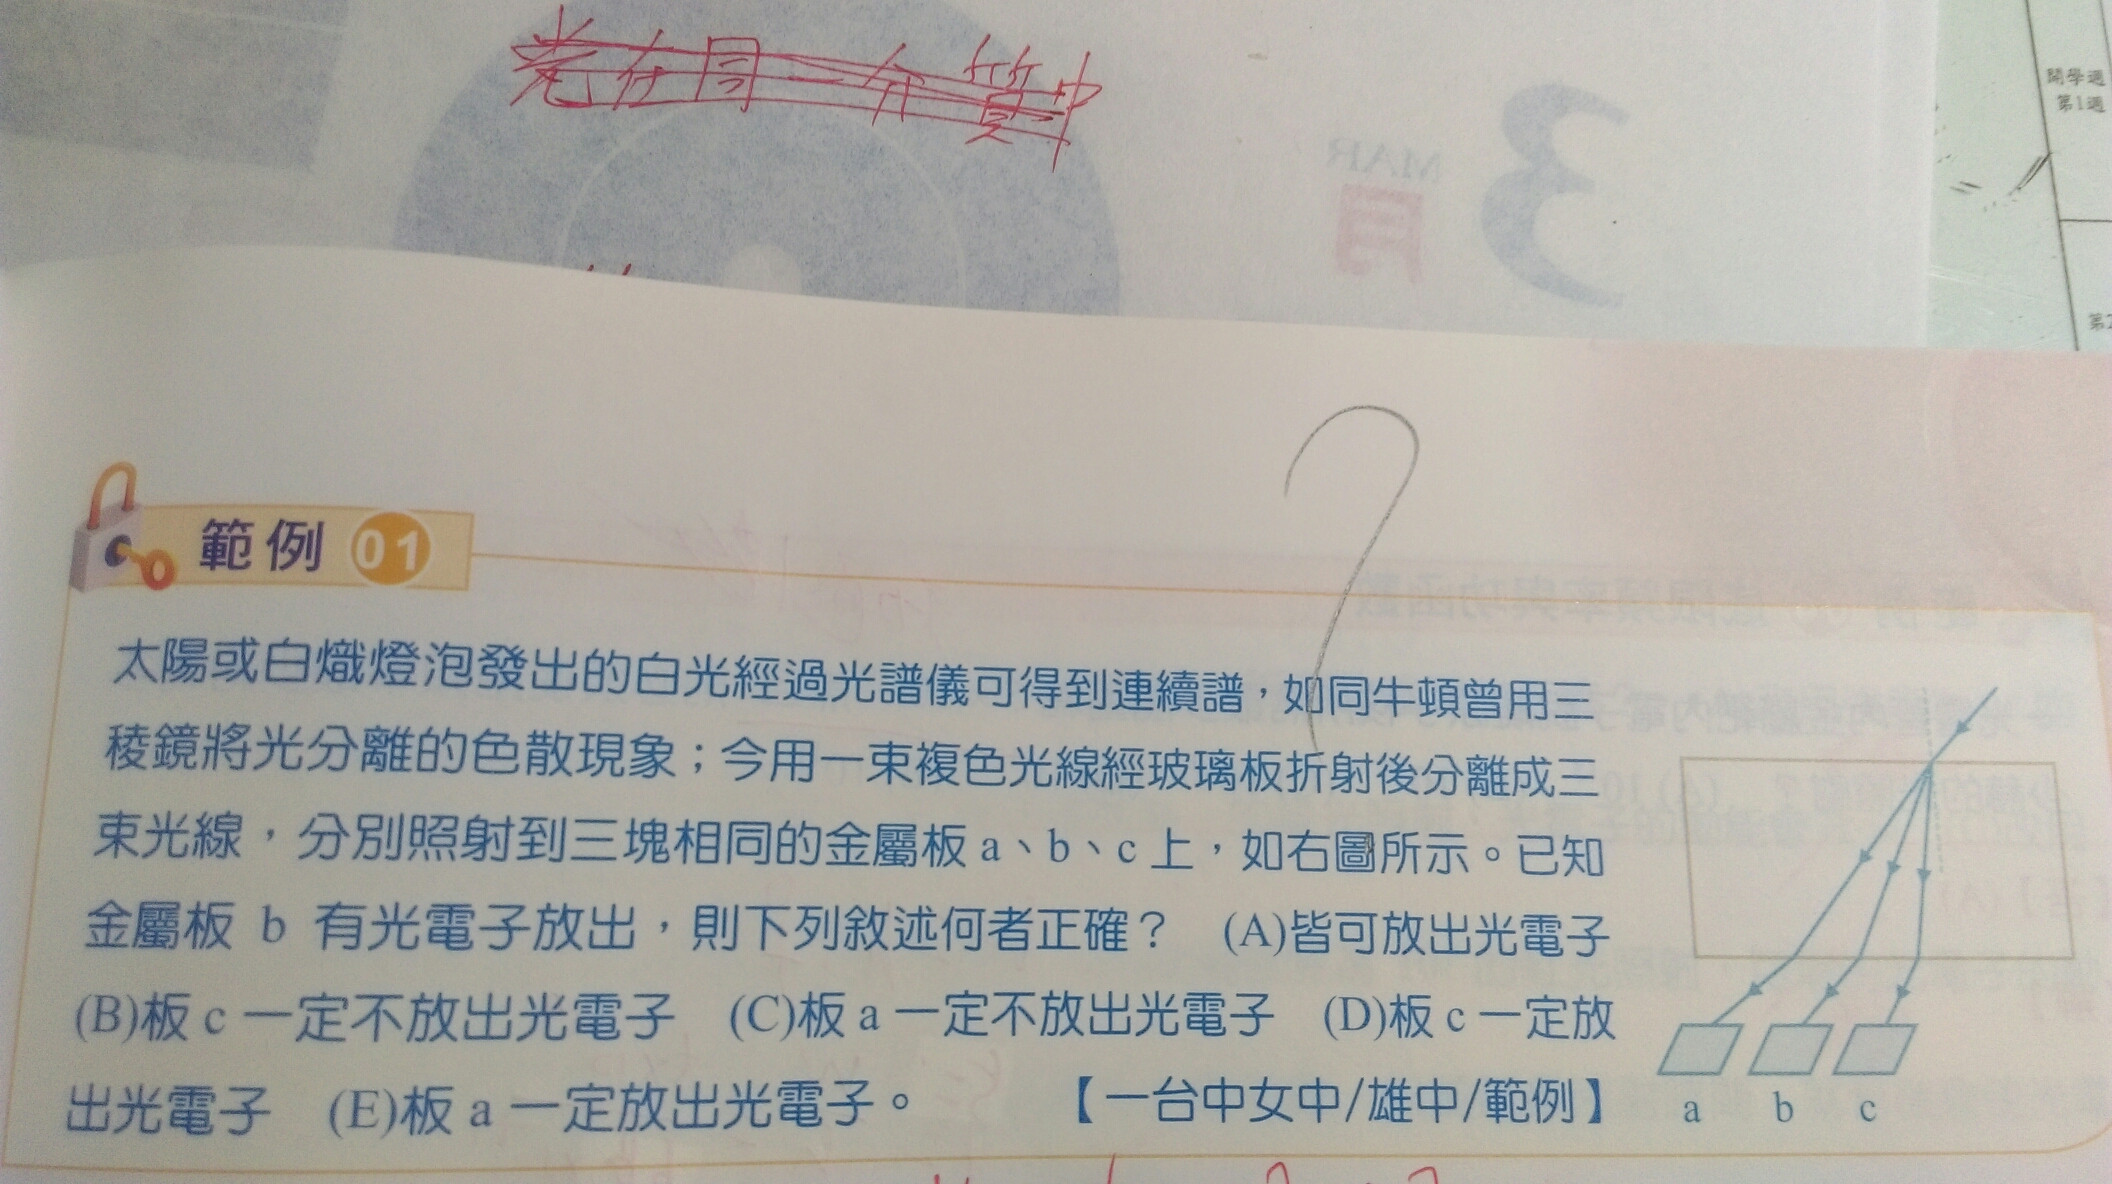 光在同一介質中
3
MAR
月
開學週
第1週
範例 01
太陽或白熾燈泡發出的白光經過光譜儀可得到連續譜，如同牛頓曾用三
稜鏡將光分離的色散現象；今用一束複色光線經玻璃板折射後分離成三
束光線，分別照射到三塊相同的金屬板 a、b、c 上，如右圖所示。已知
金屬板 b 有光電子放出，則下列敘述何者正確？ (A)皆可放出光電子
(B)板 c 一定不放出光電子 (C)板 a 一定不放出光電子 (D)板 c 一定放
出光電子 (E)板 a 一定放出光電子。 【一台中女中/雄中/範例】
a b c